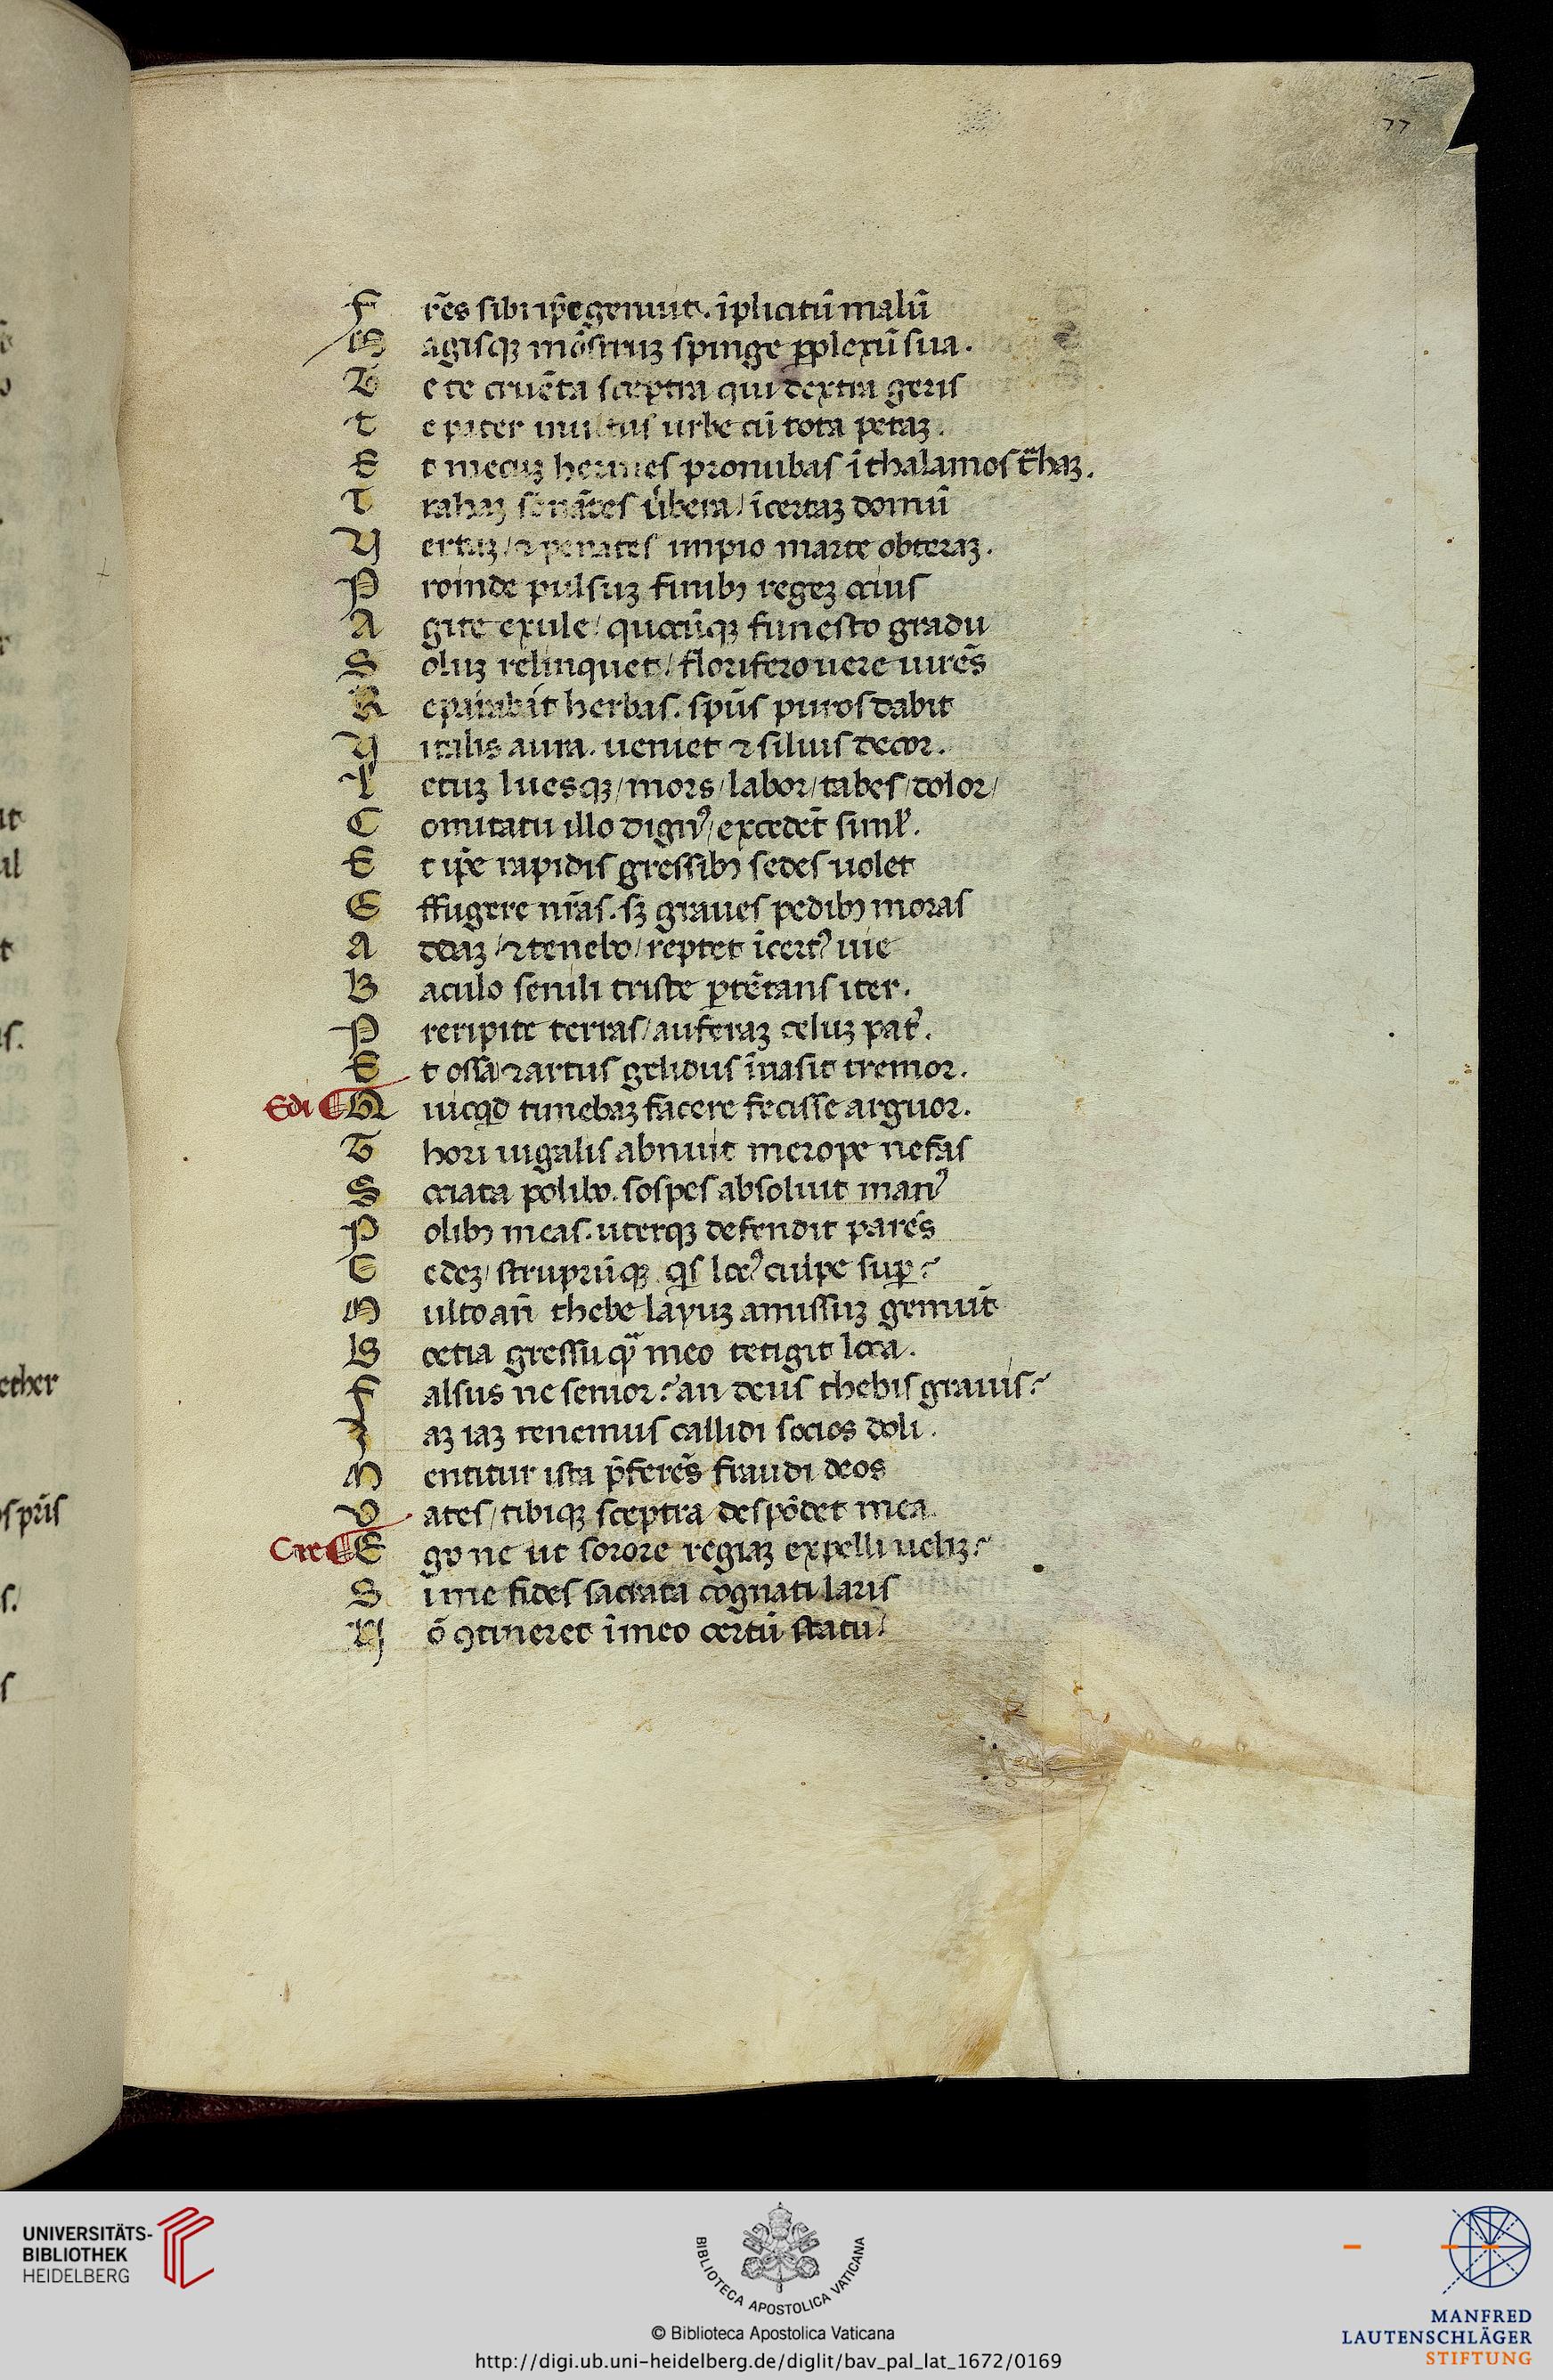 77
F res sibi ip̃e genuit. ĩplicitũ malũ
M agisqꝫ mõstruꝫ spinge ꝑplexũ sua.
T e te cruẽta sceptra qui dextra geris
T e pater inultus urbe cũ tota petaꝫ.
E t mecuꝫ herines pronubas ĩ thalamos t̃haꝫ.
T rahaꝫ sonãtes u̾bera / ĩcertaꝫ domũ
V ertaꝫ / ⁊ penates impio marte obteraꝫ.
P roinde pulsuꝫ finibꝫ regeꝫ ocius
A gite exule / quocũqꝫ funesto gradu
S oluꝫ relinquet / florifero uere uirẽs
R eparabit herbas. spũs puros dabit
V italis aura. ueniet ⁊ siluis decor.
L etuꝫ luesqꝫ / mors / labor / tabes / dolor /
C omitatu illo dignꝰ / excedẽt siml̾.
E t ip̃e rapidis gressibꝫ sedes uolet
E ffugere nr̃as. sꝫ graues pedibꝫ moras
A ddaꝫ / ⁊ tenebo / reptet ĩcertꝰ uie
B aculo senili triste p̱tẽtans iter.
P reripite terras / auferaꝫ celuꝫ pat̾.
E t ossa ⁊ artus gelidus ĩuasit tremor.
Edi Q uicq̇d timebaꝫ facere fecisse arguor.
T hori iugalis abnuit merope nefas
S ociata polibo. sospes absoluit manꝰ
P olibꝫ meas. uterqꝫ defendit parẽs
C edeꝫ / struprũqꝫ. q̇s locꝰ culpe suꝑ?
M ulto añ thebe layuꝫ amissuꝫ gemuñt
B oetia gressu qᷓ meo tetigit loca.
F alsus ne senior? an deus thebis grauis?
I aꝫ iaꝫ tenemus callidi socios doli.
M entitur ista p̃ferẽs fraudi deos
V ates / tibiqꝫ sceptra despõdet mea.
Cre E go ne ut sorore regiaꝫ expelli ueliꝫ?
S i me fides sacrata cognati laris
N õ ꝯtineret ĩ meo certũ statu /
ether
UNIVERSITÄTS-
BIBLIOTHEK
HEIDELBERG
BIBLIOTECA APOSTOLICA VATICANA
© Biblioteca Apostolica Vaticana
http://digi.ub.uni-heidelberg.de/diglit/bav_pal_lat_1672/0169
MANFRED
LAUTENSCHLÄGER
STIFTUNG